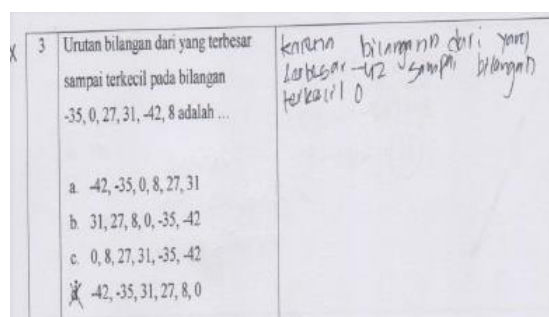 x 3 Urutan bilangan dari yang terbesar
sampai terkecil pada bilangan
-35, 0, 27, 31, -42, 8 adalah ...
a. -42, -35, 0, 8, 27, 31
b. 31, 27, 8, 0, -35, -42
c. 0, 8, 27, 31, -35, -42
-42, -35, 31, 27, 8, 0
karena bilangann dari yang
terbesar -42 sampai bilangan
terkecil 0